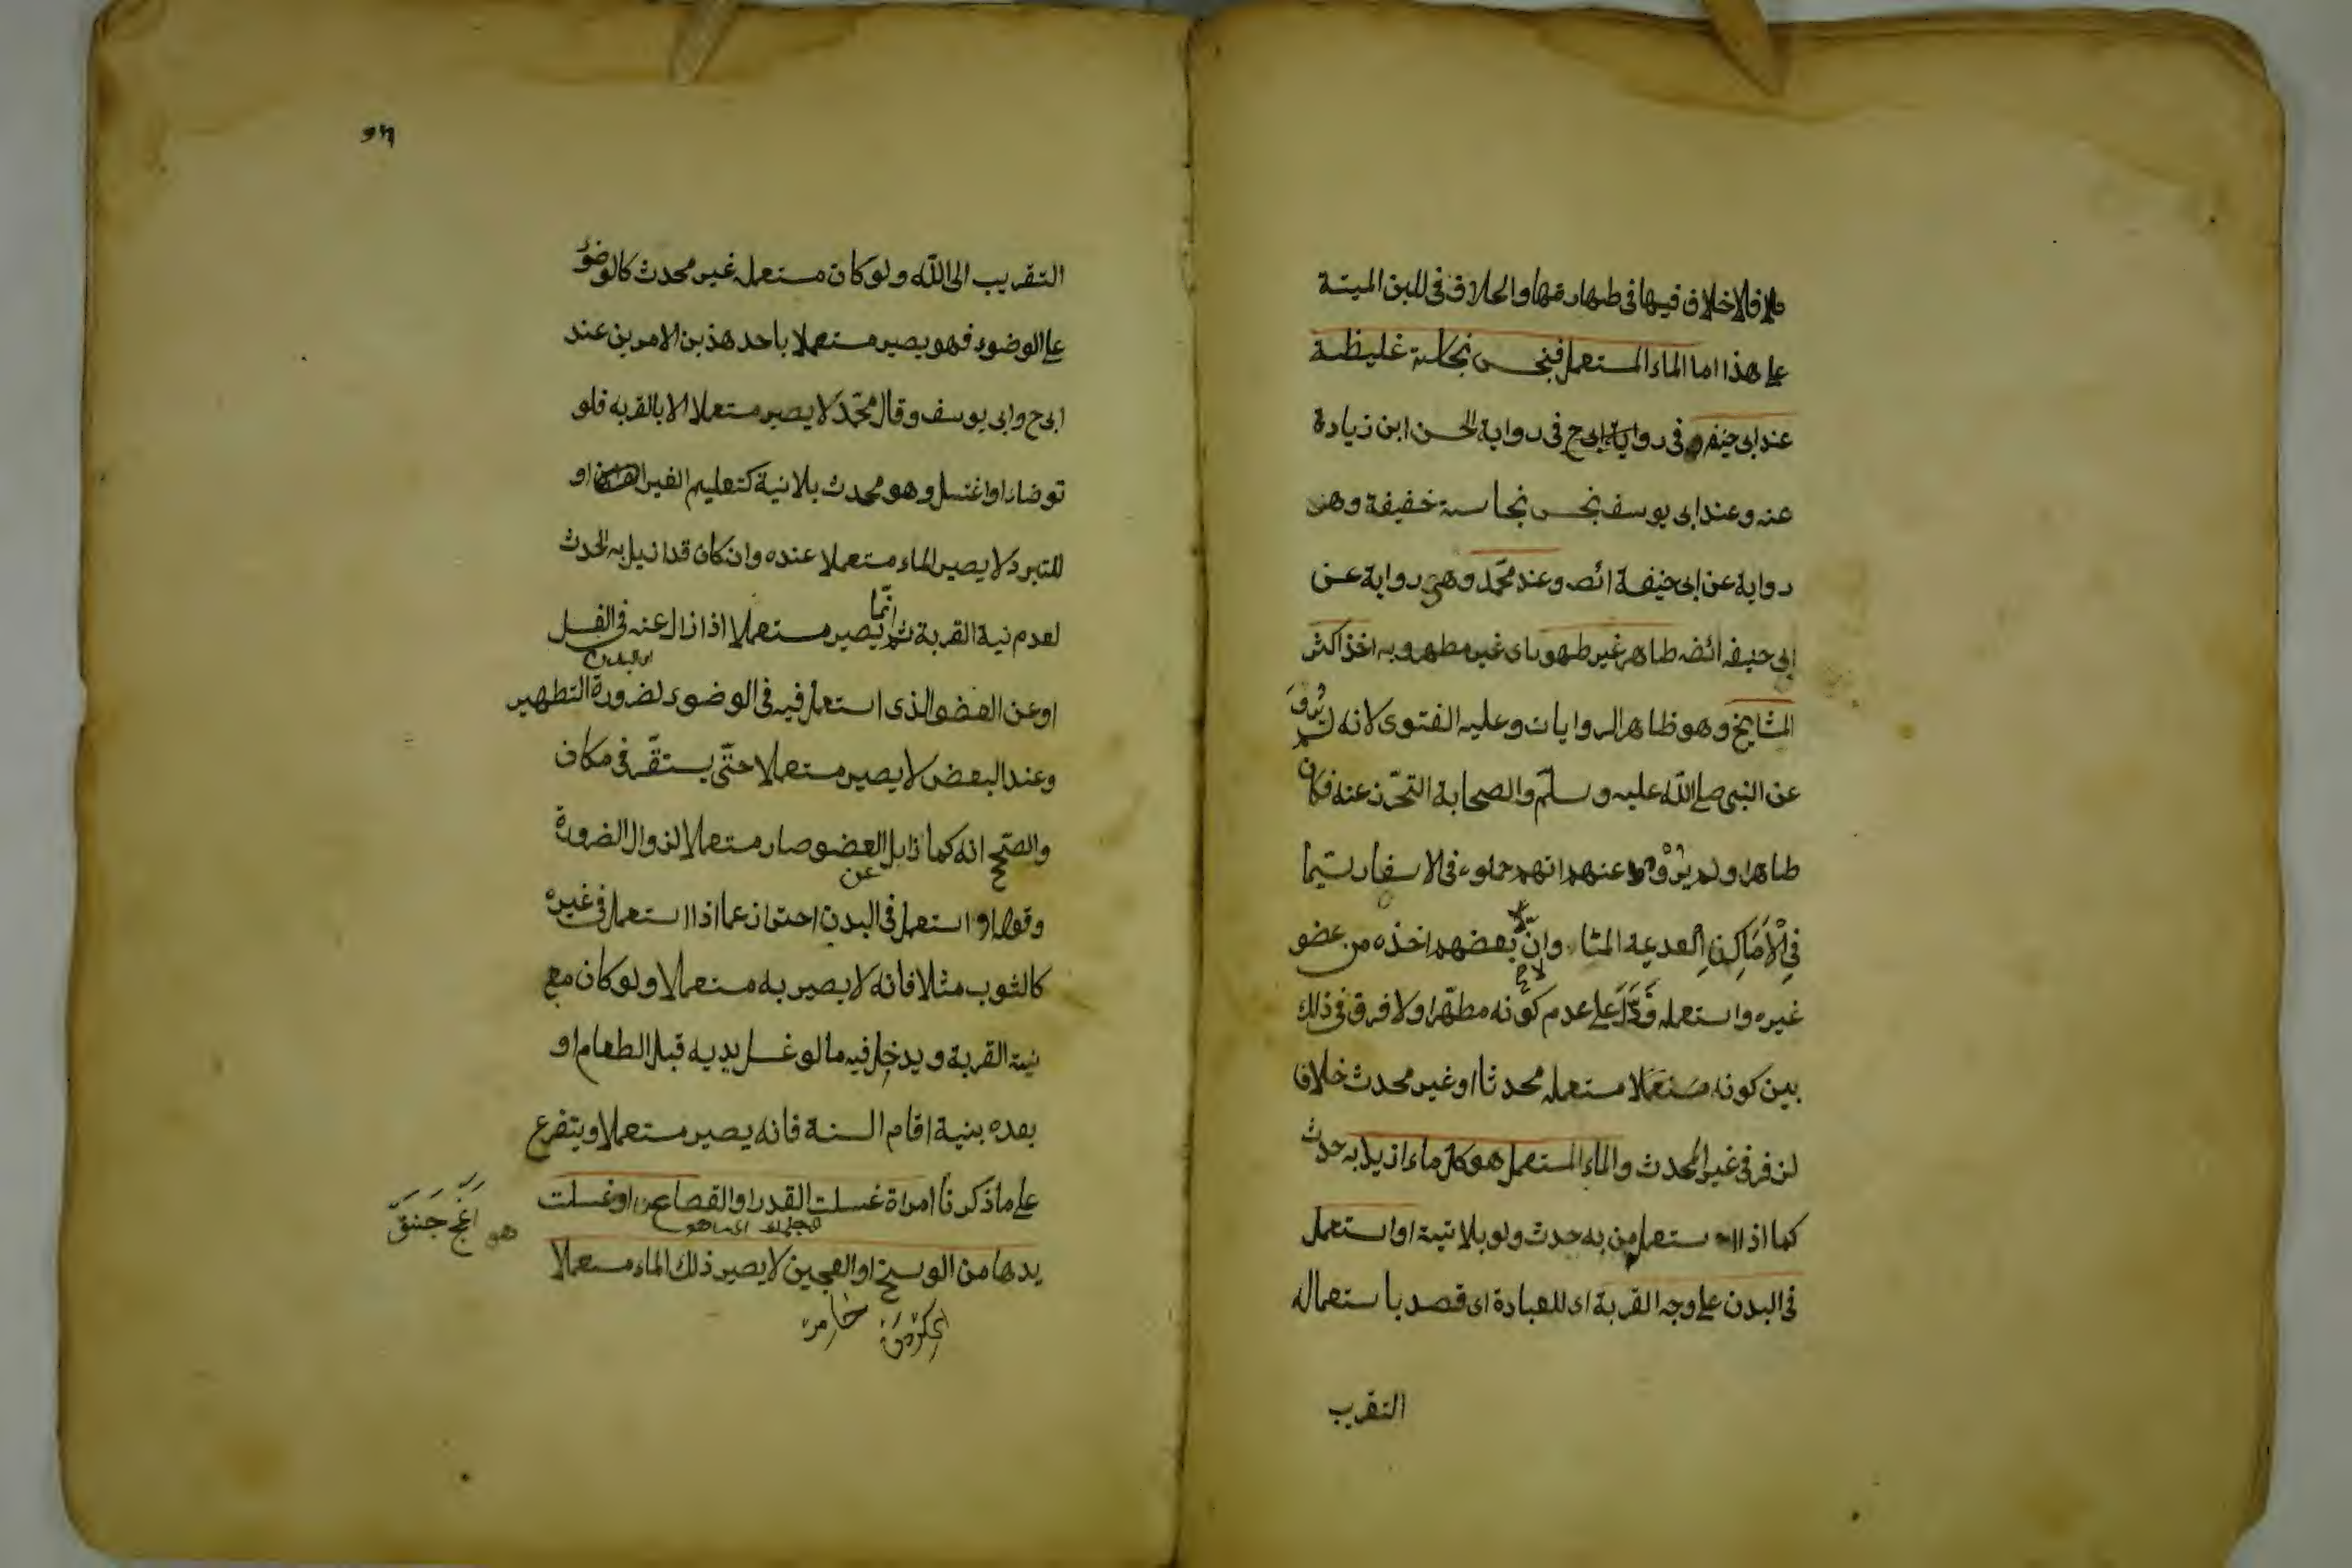 فلا خلاف فيها فى طهارتها والخلاف فى اللبن الميتة
على هذا اما الماء المستعمل فنجس نجاسة غليظة
عند ابى حنيفه فى رواية الحسن ابن زيادة
عنه وعند ابى يوسف نجس نجاسة خفيفة وهى
رواية عن ابى حنيفة ائضه وعند محمّد وهى رواية عن
ابى حنيفه ائضه طاهر غير طهور اى غير مطهر وبه اخذ اكثر
المشايخ وهو ظاهر الروايات وعليه الفتوى لانه لم يُروَ
عن النبى صلى الله عليه وسلّم والصحابة التحرّز عنه فكان
طاهرا ولم يُرْوَ عنهم انهم حملوه فى الاسفار لستيما
فِى الْاَمَاكِنِ العديمة الماء وانّ بعضهم اخذه من عضو
غيره واستعمله فَدَلَّ على عدم كونه مطهّرا ولا فرق فى ذلك
بين كونه مستعملا مستعمله محدثا او غير محدث خلافا
لزفر فى غير المحدث والماء المستعمل هو كل ماء ازيل به حدث
كما اذا استعمل من به حدث ولو بلا نيته او استعمل
فى البدن على وجه القربة اى للعبادة اى قصد باستعماله
التقرب
التقريب الى الله ولو كان مستعمله غير محدث كالوضوء
على الوضوء فهو يصير مستعملا باحد هذين الامرين عند
ابى ح وابى يوسف وقال محمّد لا يصير مستعملا الا بالقربه فلو
توضاء او اغتسل وهو محدث بلا نية كتعليم الغير او
للتبرد لا يصير الماء مستعملا عنده وان كان قد ازيل به الحدث
لعدم نية القربة ثم انّما يصير مستعملا اذا زال عنه فى الغسل
او البدن
او عن العضو الذى استعمل فيه فى الوضوء لضرورة التطهير
وعند البعض لا يصير مستعملا حتّى يستقّر فى مكان
والصّحيح انه كما زايل العضو صار مستعملا لزوال الضرورة
عن
وقوله او استعمل فى البدن احتراز عما اذا استعمل فى غيره
كالثوب مثلا فانه لا يصير به مستعملا ولو كان مع
نية القربة ويدخل فيه ما لو غسل يديه قبل الطعام او
بعده بنية اقام السنة فانه يصير مستعملا ويتفرع
على ما ذكرنا امراة غسلت القدر او القصاع او غسلت
يدها من الوسخ او العجين لا يصير ذلك الماء مستعملا